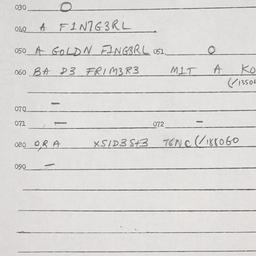 030 O
040 A F1N7G3RL
050 A GOLDN FINGBRL 051 O
060 BA D3 FRIM3R3 MIT A KO
070 -
071 - 072 -
080 O,R A XSID3S+3 (/188060
090 -